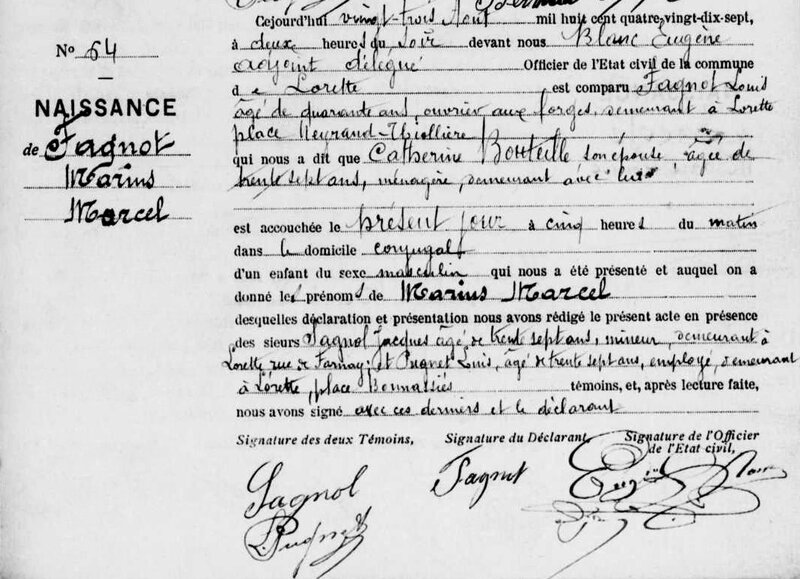 Cejourd'hui vingt-trois Aout mil huit cent quatre-vingt-dix-sept,
à deux heures du soir devant nous Blanc Eugène
adjoint délégué Officier de l'Etat civil de la commune
de Lorette est comparu Fagnot Louis
âgé de quarante ans, ouvrier aux forges, demeurant à Lorette
place Neyrand-Thiollière
qui nous a dit que Catherine Bouteille son épouse, âgée de
trente sept ans, ménagère, demeurant avec lui
est accouchée le présent jour à cinq heures du matin
dans le domicile conjugal
d'un enfant du sexe masculin qui nous a été présenté et auquel on a
donné les prénoms de Marius Marcel
desquelles déclaration et présentation nous avons rédigé le présent acte en présence
des sieurs Sagnol Jacques âgé de trente sept ans, mineur, demeurant à
Lorette rue de Farnay; et Pugnet Louis, âgé de trente sept ans, employé, demeurant
à Lorette, place Bonnassiès témoins, et, après lecture faite,
nous avons signé avec ces derniers et le déclarant
Signature des deux Témoins, Signature du Déclarant, Signature de l'Officier
de l'Etat civil,
Sagnol Fagnot Eugène Blanc
L. Pugnet
No 64
NAISSANCE
de Fagnot
Marius
Marcel